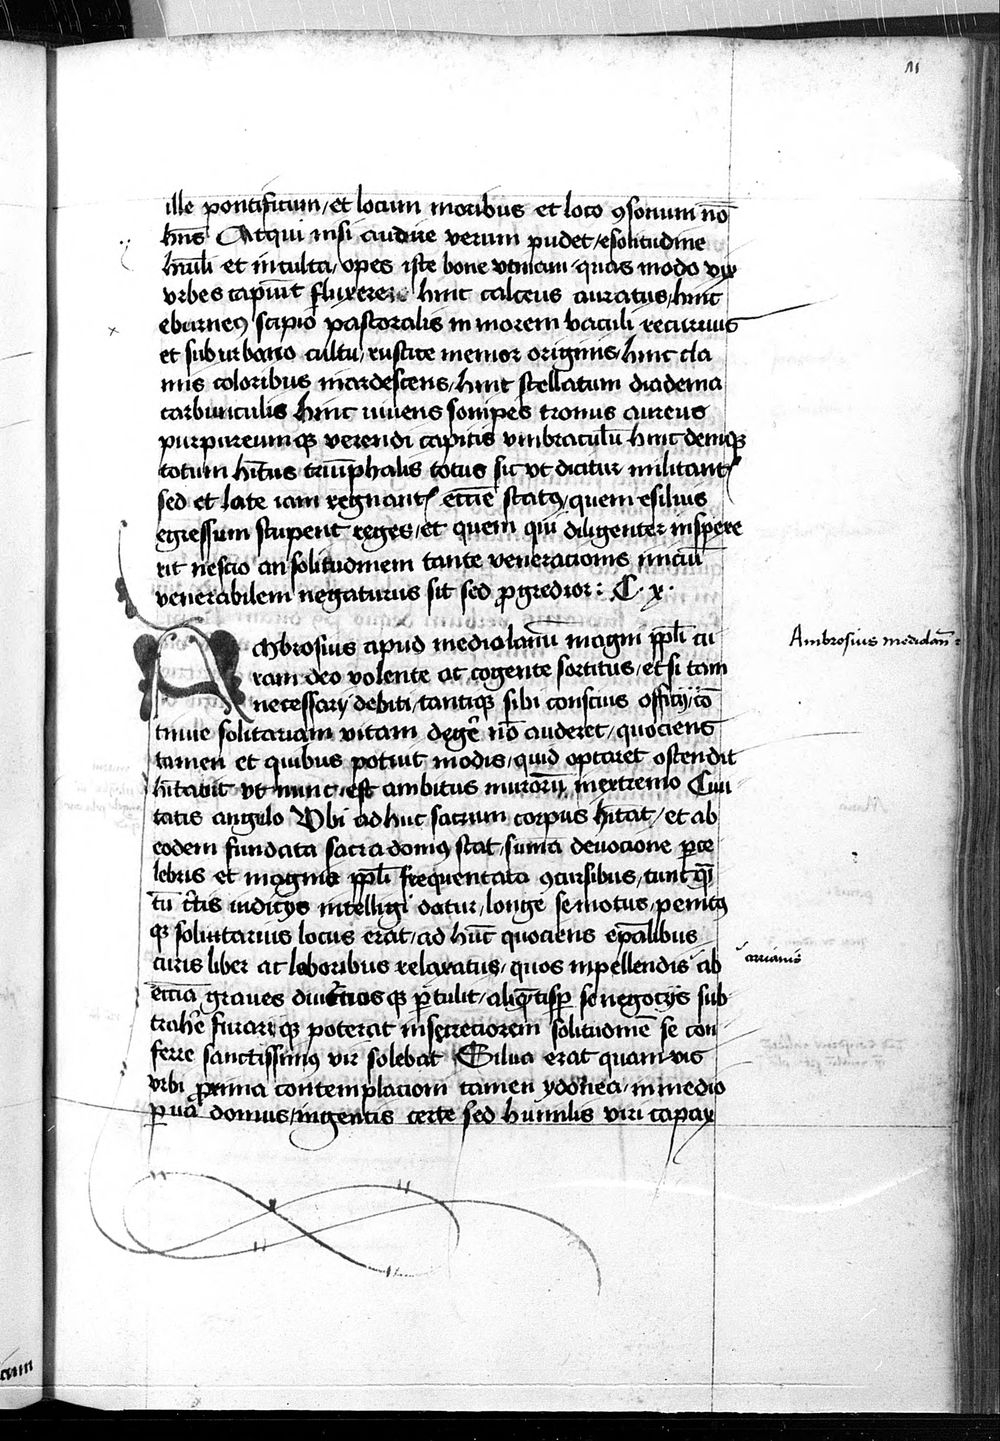 11
ille pontificum / et locum moribus et loco ꝯsonum nō
hn̄s Atqui nisi audire verum pudet / e solitudine
humili et inculta / opes iste bone utinam quas modo vix
vrbes capiūt fluxere hinc calceus auratus / hinc
eburneꝰ scipio pastoralis in morem baculi recurrus
et suburbano cultu / rustice memor originis / hinc cla
mis coloribus inardescens / hinc stellatum diadema
carbunculis hinc niuens sonipes tronus aureus
purpureumqꝫ verendi capitis vmbraculū hinc deniqꝫ
totum hītus triūphalis totus sic vt dicitur militant
sed et late iam regnant eccīe statꝰ / quem e siluis
egressum stupent reges / et quem qui diligenter inspexe
rit nescio an solitudinem tante veneracionis nimiū
venerabilem negaturus sit sed ꝓgredior : C. x.
Ambrosius apud mediolanū magni ppl̄i cu
ram deo volente ac cogente sortitus / etsi tam
necessarij debiti / tantiqꝫ sibi conscius officij / cō
tinue solitariam vitam degē nō auderet / quociens
tamen et quibus potuit modis / quid optaret ostendit
hītauit vt nunc est ambitus murorū in extremo Ciui
tatis angulo Vbi adhuc sacrum corpus hītat / et ab
eodem fundata sacra domꝰ stat / sūma deuocione ꝑce
lebris et magnis ppl̄i frequentata ꝯcursibus / tunc qm̄
tū c̄tis indicijs intelligi datur / longe semotus / penitꝰ
qꝫ solitarius locus erat / ad hūc quociens ep̄alibus
curis liber ac laboribus relaxatus / quos in pellendis ab
eccīa graues diutinosqꝫ ꝑtulit / aliqͣtisꝑ se negocijs sub
trahē furariqꝫ poterat in secreciorem solitudinē se con
ferre sanctissimꝰ vir solebat Silua erat quamvis
vrbi ꝓxima contemplacioni tamen ydonea / in medio
ꝑua domus / ingentis certe sed humilis viri capax
Ambrosius mediolan̄
arrianis